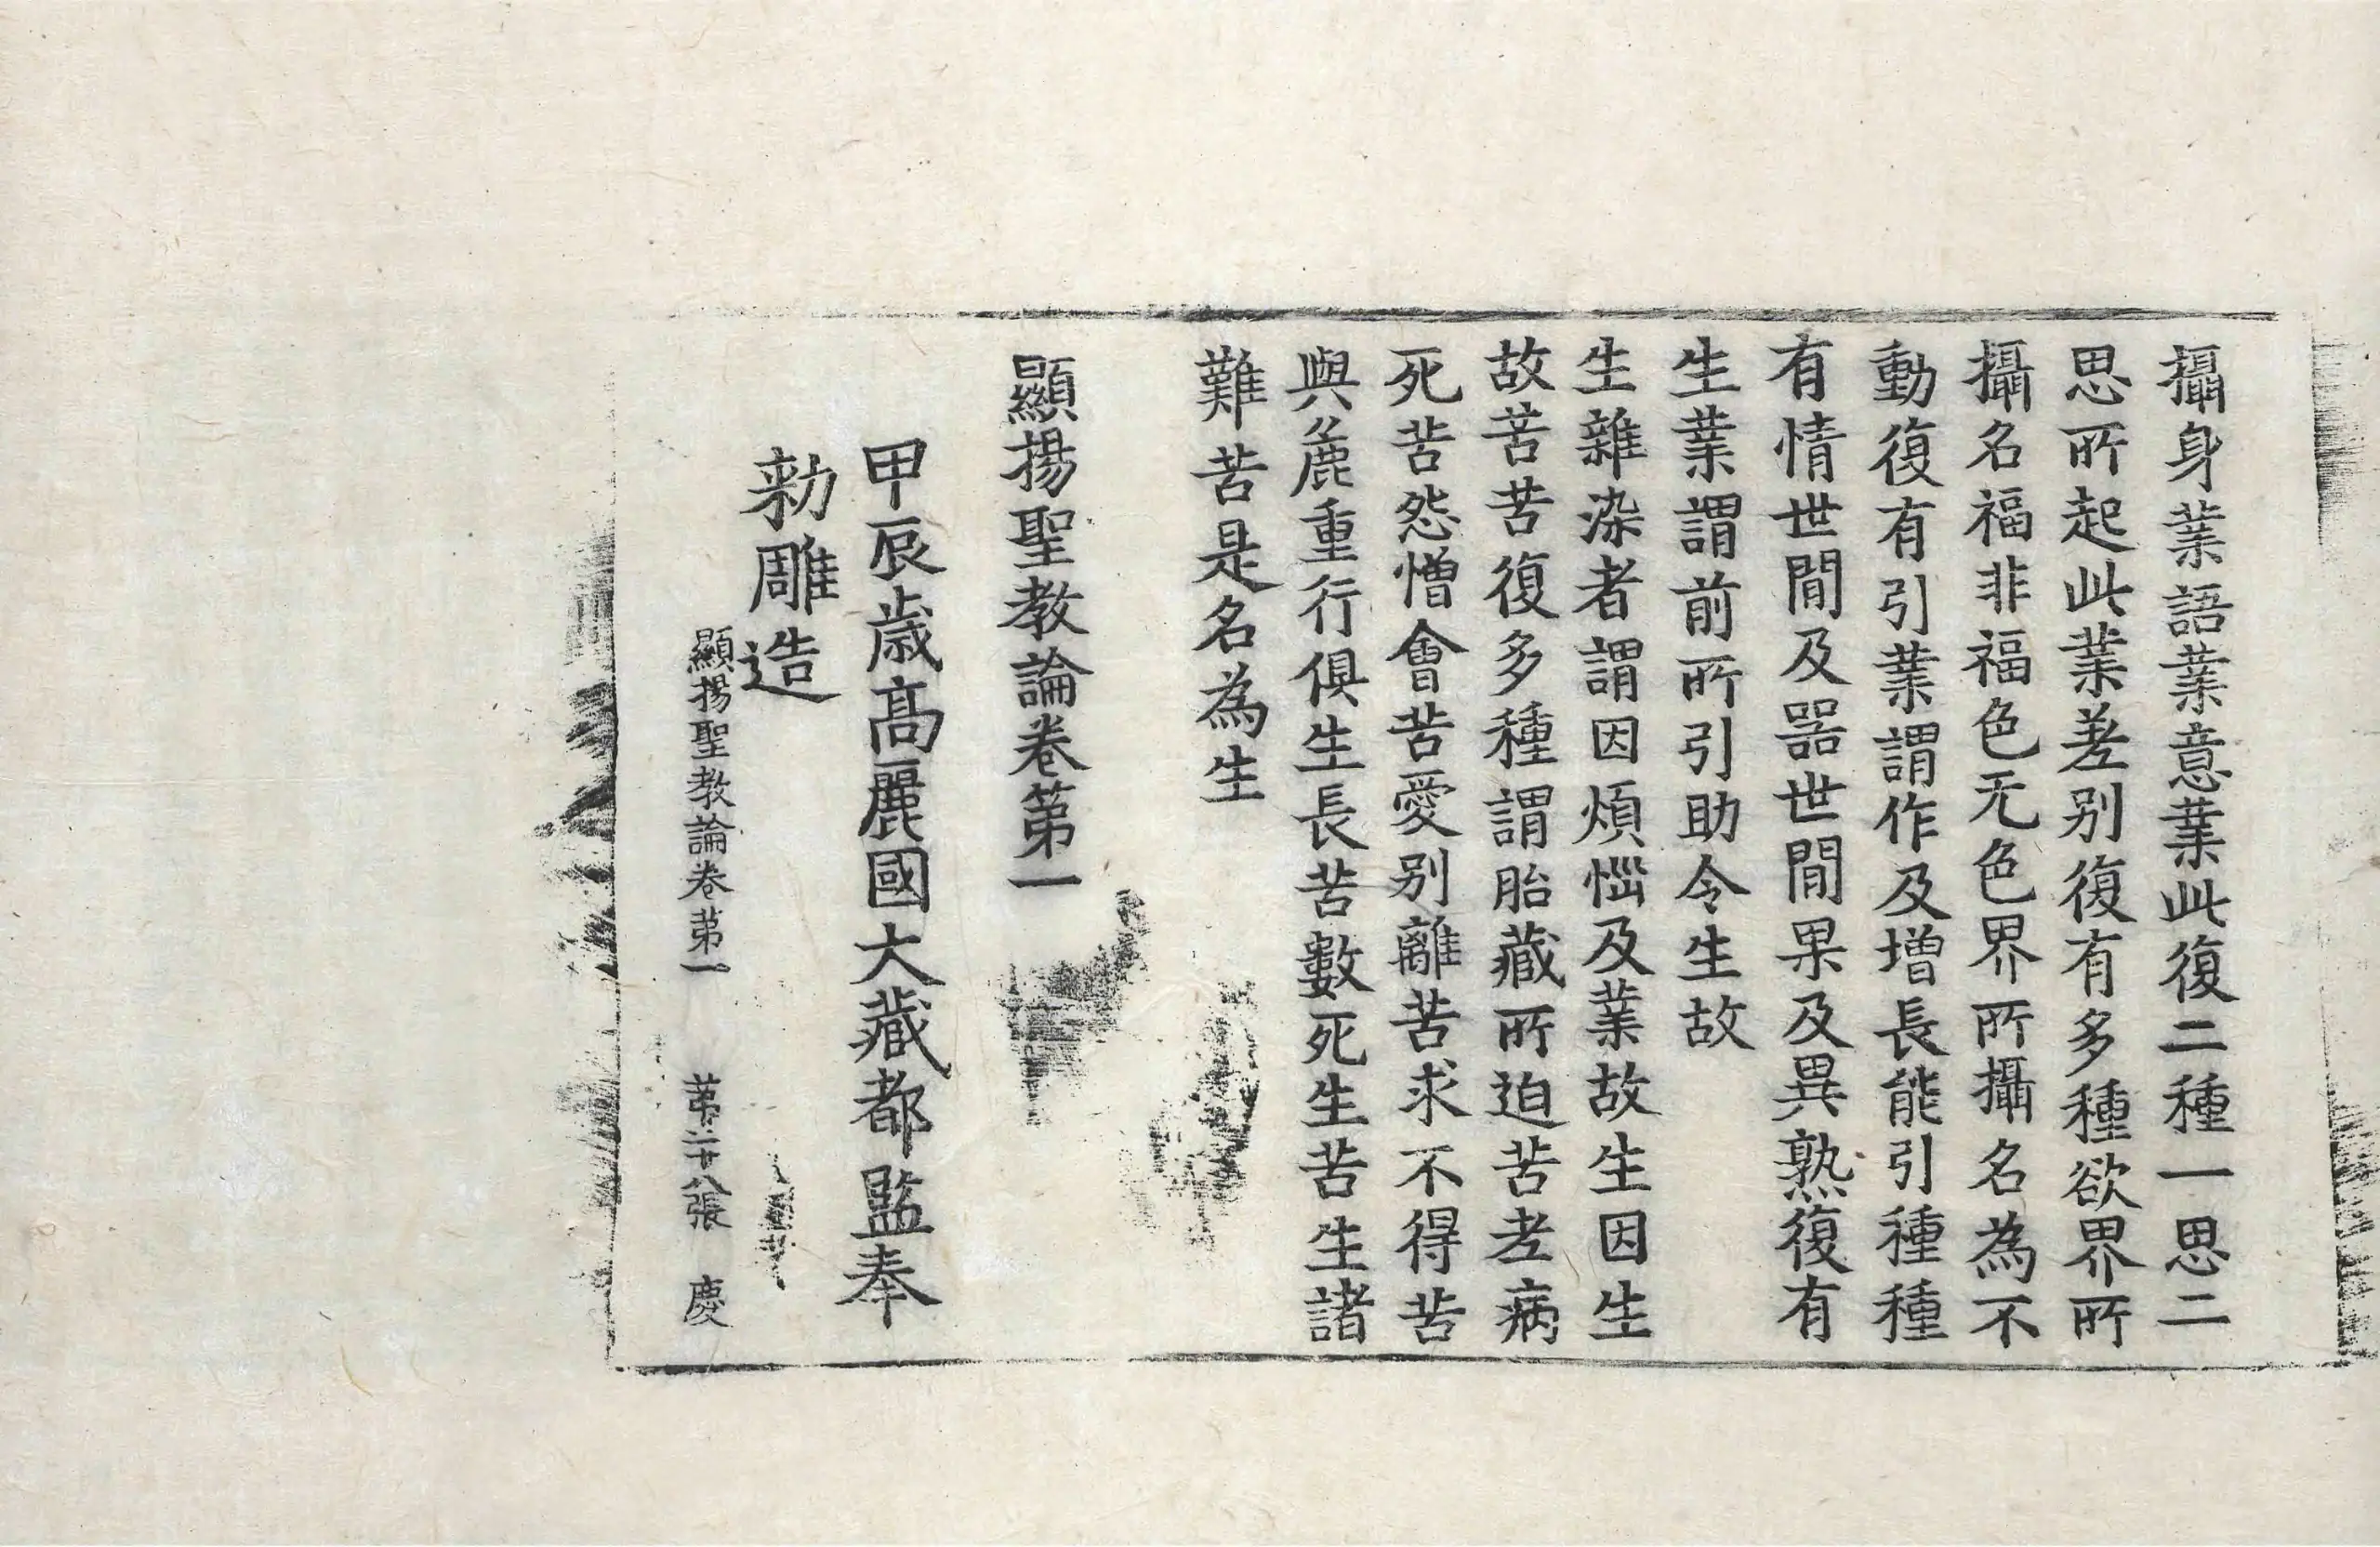 攝身業語業意業此復二種一思二
思所起此業差別復有多種欲界所
攝名福非福色无色界所攝名為不
動復有引業謂作及增長能引種種
有情世間及器世間果及異熟復有
生業謂前所引助令生故
生雜染者謂因煩惱及業故生因生
故苦苦復多種謂胎藏所迫苦老病
死苦怨憎會苦愛別離苦求不得苦
與麁重行俱生長苦數死生苦生諸
難苦是名為生
顯揚聖教論卷第一
甲辰歲高麗國大藏都監奉
勑雕造
顯揚聖教論卷第一 第二十八張 慶